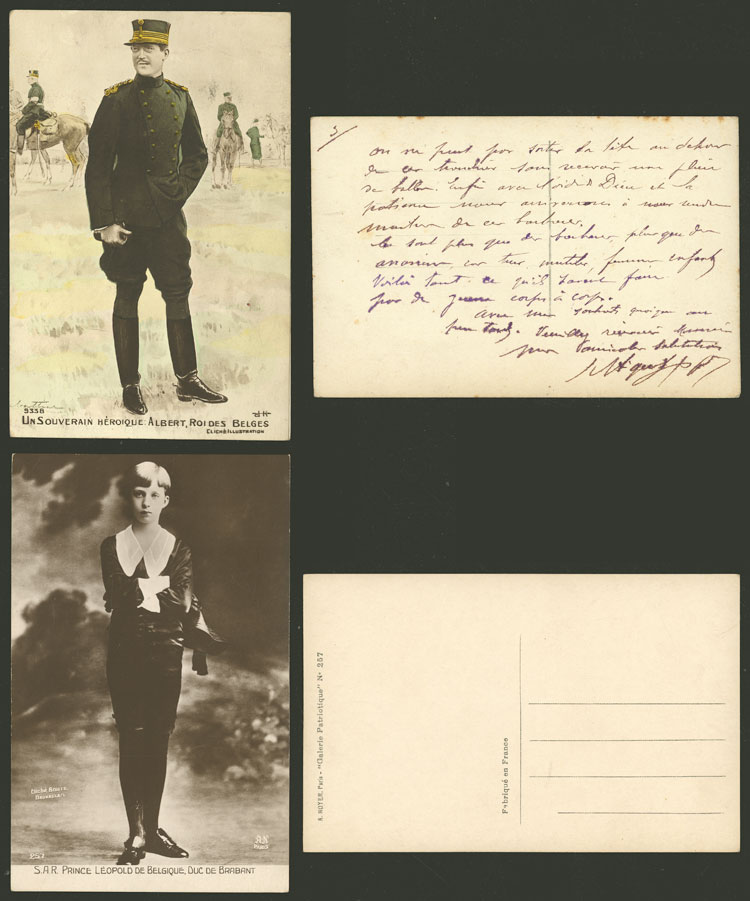 9338
UN SOUVERAIN HÉROIQUE: ALBERT, ROI DES BELGES
CLICHÉ ILLUSTRATION
3/
on ne peut pas sortir la tête au dehors
de ces tranchées sans recevoir une pluie
de balles. Enfin avec l'aide de Dieu et la
patience nous arriverons à nous rendre
maîtres de ces barbares.
ils sont plus que des barbares, plus que des
car tuer, mutiler femmes enfants
Voilà tout ce qu'ils savent faire
pas de guerre corps à corps.
Avec mes souhaits quoique un
peu tard. Veuillez recevoir
mes amicales salutations
257
CLICHÉ
AN
PARIS
S.A.R. PRINCE LÉOPOLD DE BELGIQUE, DUC DE BRABANT
A. NOYER, Paris - "Galerie Patriotique" N° 257
Fabriqué en France